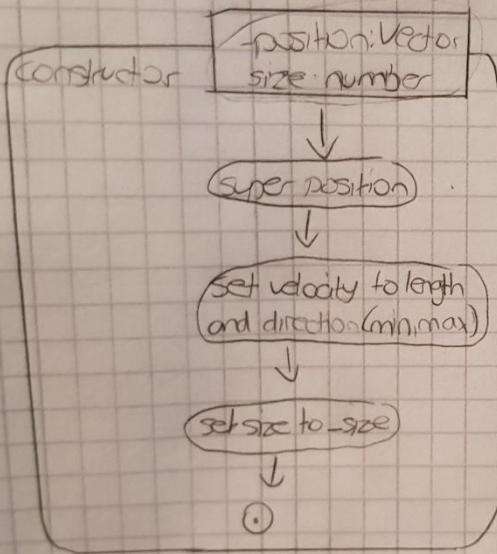 constructor
-position: Vector
size: number
super position
set velocity to length
and direction(min, max)
set size to _size